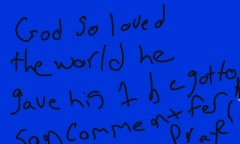 God so loved
the world he
gave his 1 begotto
son comment for
prayer